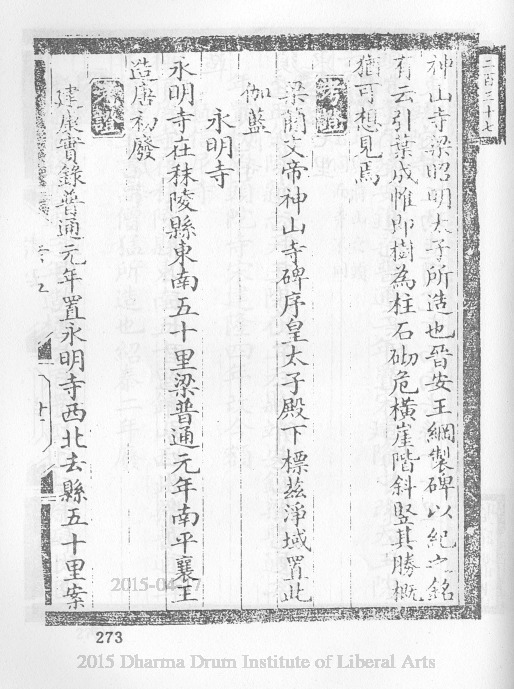 二百三十七
神山寺梁昭明太子所造也晉安王綱製碑以紀之銘
有云引葉成帷即樹為柱石砌危橫崖階斜竪其勝槪
猶可想見焉
考證
梁簡文帝神山寺碑序皇太子殿下標茲淨域置此
伽藍
永明寺
永明寺在秣陵縣東南五十里梁普通元年南平襄王
造唐初廢
考證
建康實錄普通元年置永明寺西北去縣五十里案
273
2015 Dharma Drum Institute of Liberal Arts